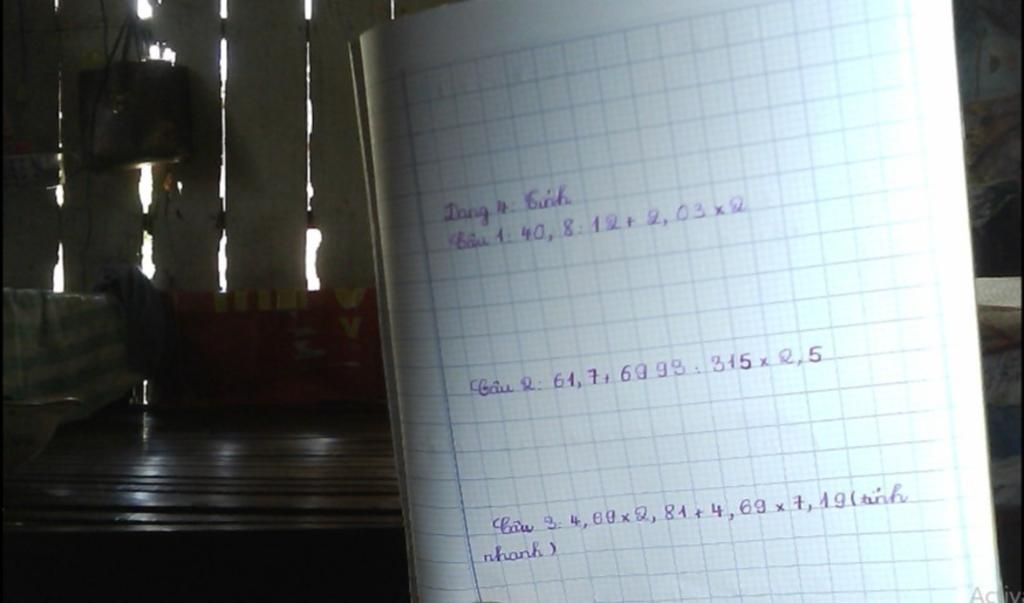 Dạng 4: Tính
Câu 1: 40,8 : 12 + 2,03 × 2
Câu 2: 61,7 + 6993 : 315 × 2,5
Câu 3: 4,69 × 2,81 + 4,69 × 7,19 (tính
nhanh)
Activ